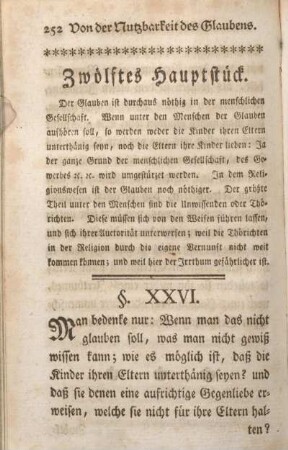 252 Von der Nutzbarkeit des Glaubens.
Zwölftes Hauptstück.
Der Glauben ist durchaus nöthig in der menschlichen
Gesellschaft. Wenn unter den Menschen der Glauben
aufhören soll, so werden weder die Kinder ihren Eltern
unterthänig seyn, noch die Eltern ihre Kinder lieben: Ja
der ganze Grund der menschlichen Gesellschaft, des Ge-
werbes ꝛc. ꝛc. wird umgestürzet werden. In dem Reli-
gionswesen ist der Glauben noch nöthiger. Der größte
Theil unter den Menschen sind die Unwissenden oder Thö-
richten. Diese müssen sich von den Weisen führen lassen,
und sich ihrer Auctorität unterwerfen; weil die Thörichten
in der Religion durch die eigene Vernunft nicht weit
kommen können; und weil hier der Irrthum gefährlicher ist.
§. XXVI.
Man bedenke nur: Wenn man das nicht
glauben soll, was man nicht gewiß
wissen kann; wie es möglich ist, daß die
Kinder ihren Eltern unterthänig seyen? und
daß sie denen eine aufrichtige Gegenliebe er-
weisen, welche sie nicht für ihre Eltern hal-
ten?